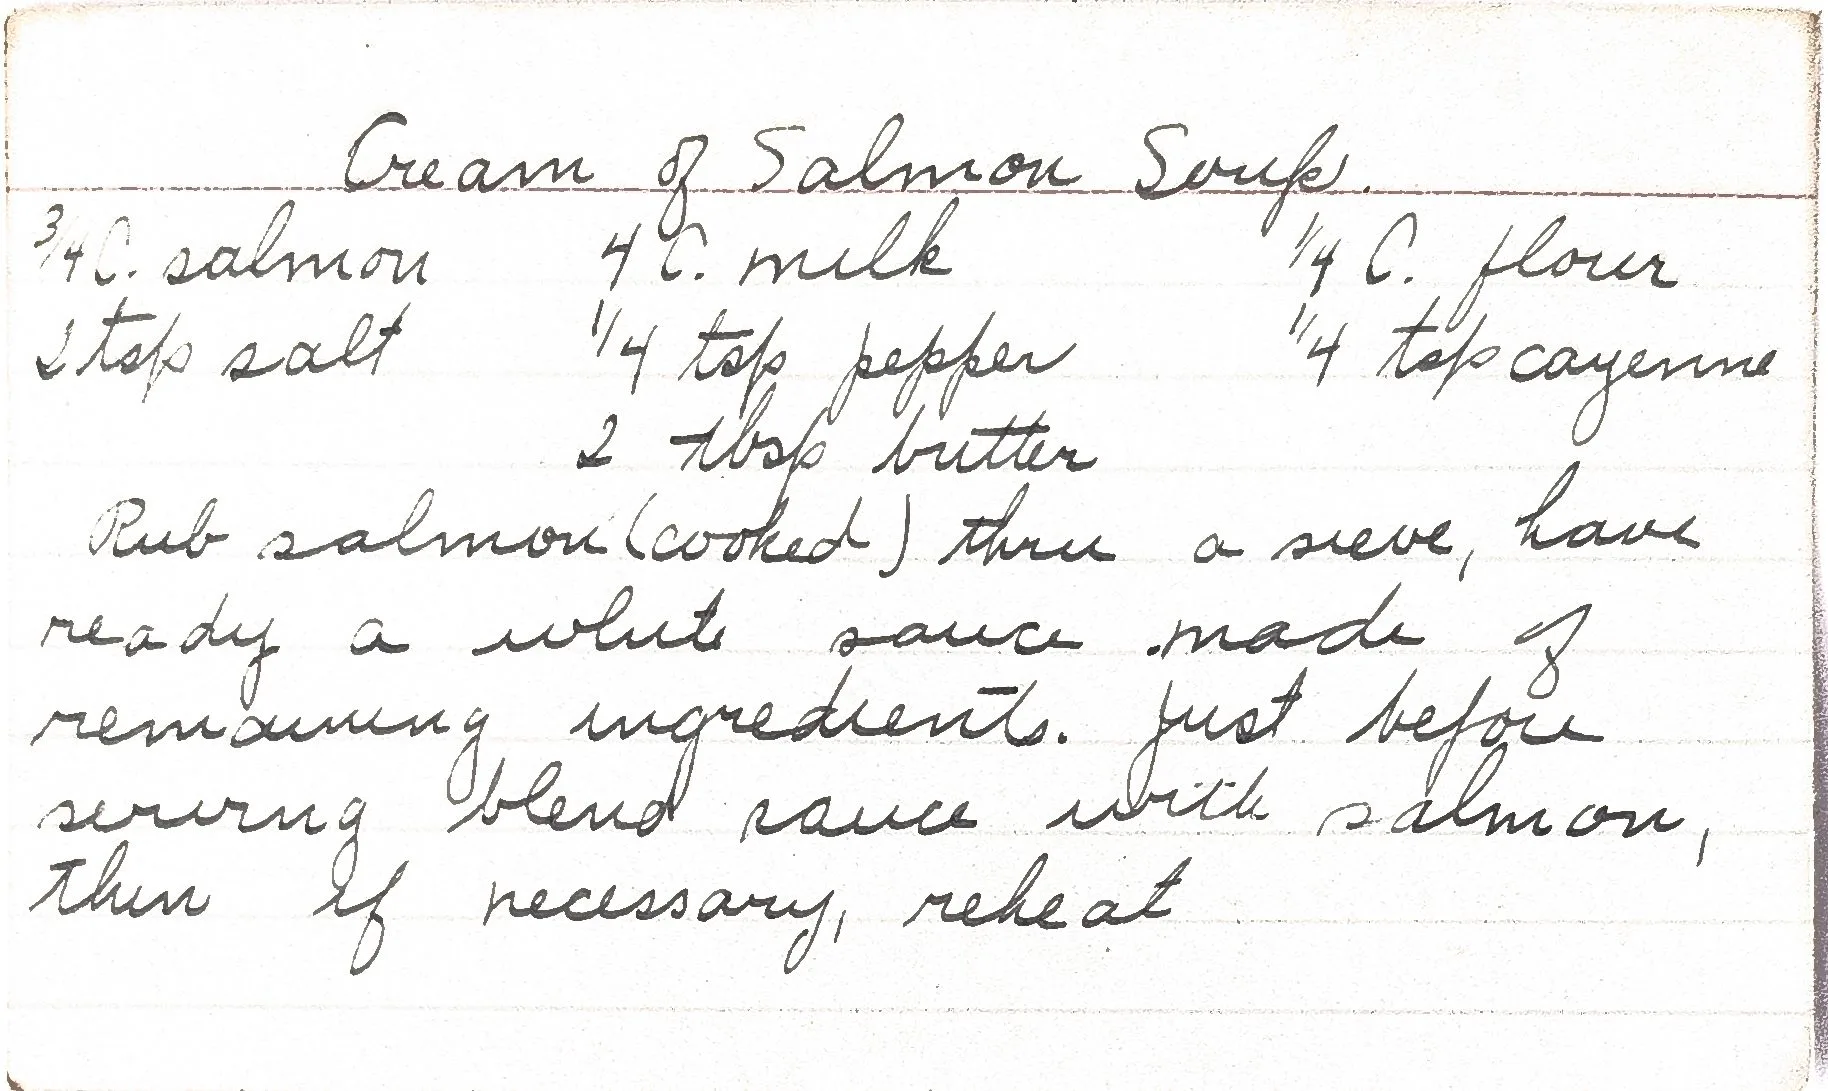 Cream of Salmon Soup.
3/4 C. salmon 4 C. milk 1/4 C. flour
2 tsp salt 1/4 tsp pepper 1/4 tsp cayenne
2 tbsp butter
Rub salmon (cooked) thru a sieve, have
ready a white sauce made of
remaining ingredients. Just before
serving blend sauce with salmon,
then if necessary, reheat